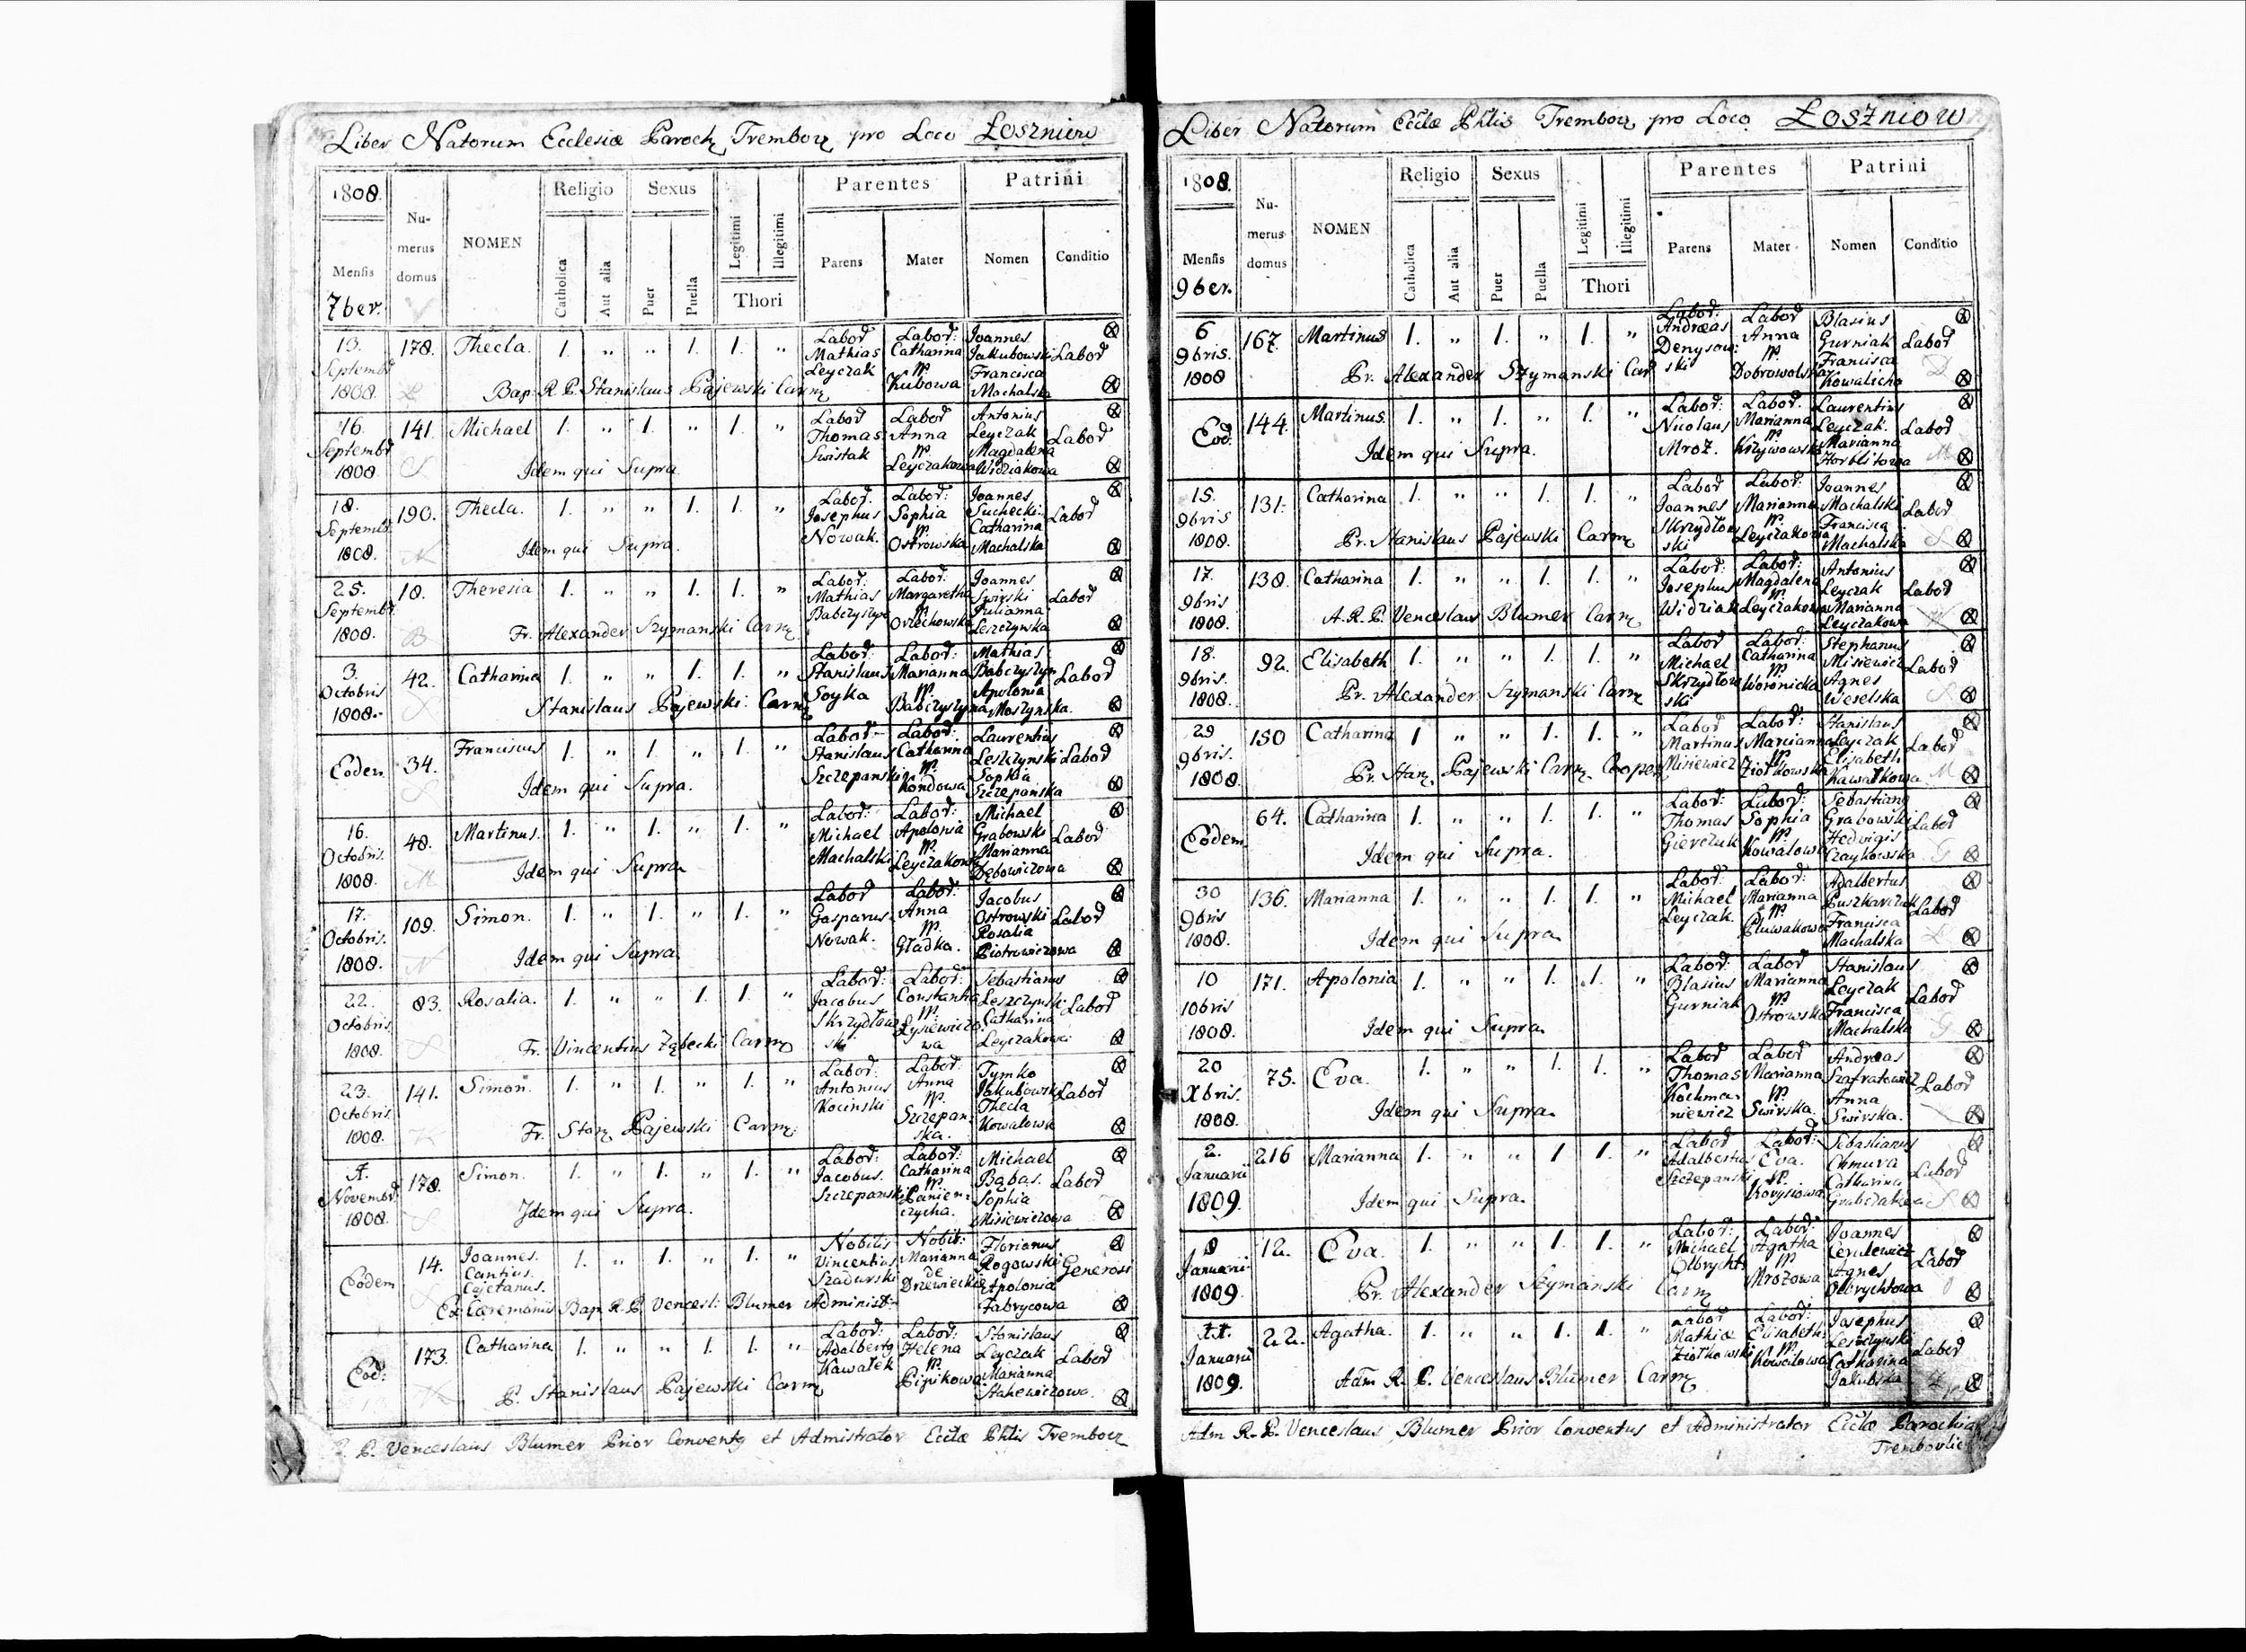 Liber Natorum Ecclesiæ Paroch Trembow pro Loco Łoszniow
1808. Numerus domus NOMEN Religio Sexus Legitimi Illegitimi Parentes Patrini
Mensis Catholica Aut alia Puer Puella Thori Parens Mater Nomen Conditio
7ber.
13. Septembr 1808. 178. Thecla. 1. " " 1. 1. " Labor Mathias Leyczak Labor: Catharina Kubowa Joannes Jakubowski Francisca Machalska Labor
Bap: R. P. Stanislaus Pajewski Carm
16. Septembr 1808 141. Michael 1. " 1. " 1. " Labor Thomas Swistak Labor Anna Leyczakowa Antonius Leyczak Magdalena Widziakowa Labor
Idem qui Supra.
18. Septembr. 1808. 190. Thecla. 1. " " 1. 1. " Labor. Josephus Nowak. Labor: Sophia Ostrowska Joannes Suchecki. Catharina Machalska Labor
Idem qui Supra.
25. Septembr. 1808. 18. Theresia 1. " " 1. 1. " Labor: Mathias Labor: Margaretha Orzechowska Joannes Swirski Julianna Leszczynska Labor
Fr. Alexander Szymanski Carm
3. Octobris 1808. 42. Catharina 1. " " 1. 1. " Labor: Stanislaus Soyka Labor: Marianna Babczyszyna Mathias Babczyszyn Apolonia Moszynska. Labor
Stanislaus Pajewski. Carm
Eodem 34. Franciscus 1. " 1. " 1. " Labor Stanislaus Szczepanski Labor: Catharina Kondowa Laurentius Leszczynski Sophia Szczepańska Labor
Idem qui Supra.
16. Octobris. 1808. 48. Martinus. 1. " 1. " 1. " Labor: Michael Machalski Labor: Apolonia Leyczakowa Michael Grabowski Marianna Dębowiczowa Labor
Idem qui Supra
17. Octobris. 1808. 109. Simon. 1. " 1. " 1. " Labor Gasparus Nowak. Labor: Anna Gładka. Jacobus Ostrowski Rosalia Piotrowiczowa Labor
Idem qui Supra
22. Octobris. 1808. 83. Rosalia. 1. " " 1. 1. " Labor: Jacobus Skrzydłowski Labor: Constantia Łysiewiczowa Sebastianus Leszczynski Catharina Leyczakowa Labor
Fr. Vincentius Zębecki Carm
23. Octobris. 1808. 141. Simon. 1. " 1. " 1. " Labor: Antonius Kocinski Labor. Anna Szczepanska. Tymko Jakubowski Thecla Kowalowa Labor
Fr. Stan Pajewski Carm
Novembr. 1808. 178. Simon. 1. " 1. " 1. " Labor: Jacobus. Szczepanski Labor: Catharina Michael Bąbas. Sophia Misiewiczowa Labor
Idem qui Supra.
Eodem 14. Joannes. Cantius. Cajetanus. 1. " 1. " 1. " Nobilis Vincentius Szadurski Nobil: Marianna de Drzewieckie Florianus Rogowski Apolonia Fabrycowa Generosi
Ex Cæremoniis Bap. R. P. Vencesl: Blumer Administr
Eod: 173. Catharina 1. " " 1. 1. " Labor: Adalbertg Kawałek Labor: Helena Pipikowa Stanislaus Leyczak Marianna Labor
P. Stanislaus Pajewski Carm
R. P. Venceslaus Blumer Prior Conventg et Admistrator Eccłæ Phlis Trembow
Liber Natorum Eccłæ Phlis Trembow pro Loco Łoszniow
1808. Numerus domus NOMEN Religio Sexus Legitimi Illegitimi Parentes Patrini
Mensis Catholica Aut alia Puer Puella Thori Parens Mater Nomen Conditio
9ber.
6 9bris. 1808 167. Martinus 1. " 1. " 1. " Labor: Andreas Denysowski Labor Anna Dobrowolska Blasius Gurniak Francisca Kowalicha Labor
Pr. Alexander Szymanski Car
Eod. 144. Martinus. 1. " 1. " 1. " Labor: Nicolaus Mroz. Labor. Marianna Krzywowska Laurentius Leyczak. Marianna Horblitowa Labor
Idem qui Supra.
15. 9bris 1808. 131. Catharina 1. " " 1. 1. " Labor Joannes Skrzydłowski Labor: Marianna Leyczakowa Joannes Machalski Francisca Machalska Labor
Pr. Stanislaus Pajewski Carm
17. 9bris 1808. 138. Catharina 1. " " 1. 1. " Labor: Josephus Widziak Labor: Magdalena Leyczakowa Antonius Leyczak Marianna Leyczakowa Labor
A. R. P. Venceslaus Blumer Carm
18. 9bris. 1808. 92. Elisabeth 1. " " 1. 1. " Labor Michael Skrzydłowski Labor: Catharina Woronicka Stephanus Misiewicz Agnes Weselska Labor
Pr. Alexander Szymanski Carm
29 9bris. 1808. 150 Catharina 1 " " 1. 1. " Labor Martinus Misiewicz Labor: Marcianna Ziołkowska Stanislaus Leyczak Elisabeth Kawałkowa Labor
Pr. Stan. Pajewski Carm. Cooper
Eodem 64. Catharina 1. " " 1. 1. " Labor: Thomas Gierczuk Labor: Sophia Kowalowa Sebastiang Grabowski Hedvigis Czaykowska Labor
Idem qui Supra.
30 9bris 1808. 136. Marianna 1. " " 1. 1. " Labor: Michael Leyczak. Labor: Marianna Pluwakowa Adalbertus Francisca Machalska Labor
Idem qui Supra
10 10bris 1808. 171. Apolonia 1. " " 1. 1. " Labor: Blasius Gurniak Labor Marianna Ostrowska Stanislaus Leyczak Francisca Machalska Labor
Idem qui Supra
20 Xbris. 1808. 75. Eva. 1. " " 1. 1. " Labor Thomas Kochmaniewicz Labor Marianna Swirska. Andreas Szafratowicz Anna Swirska. Labor
Idem qui Supra.
2. Januarii 1809. 216 Marianna 1. " " 1 1. " Labor Adalbertus Szczepanski Labor: Eva. Korysiowa Sebastianus Chmura Catharina Labor
Idem qui Supra.
8 Januarii 1809. 12. Eva. 1. " " 1. 1. " Labor: Michael Olbrycht Labor: Agatha Mrozowa Joannes Cerulewicz Agnes Olbrychtowa Labor
Pr. Alexander Szymanski Carm
11. Januarii 1809. 22. Agatha. 1. " " 1. 1. " Labor Mathiæ Ziołkowski Labor: Elisabeth Kowalowa Josephus Leszczynski Catharina Jakubska Labor
Adm R. P. Venceslaus Blumer Carm
Adm R. P. Venceslaus Blumer Prior Conventus et Administrator Eccłæ Parochia
Tremboвlie